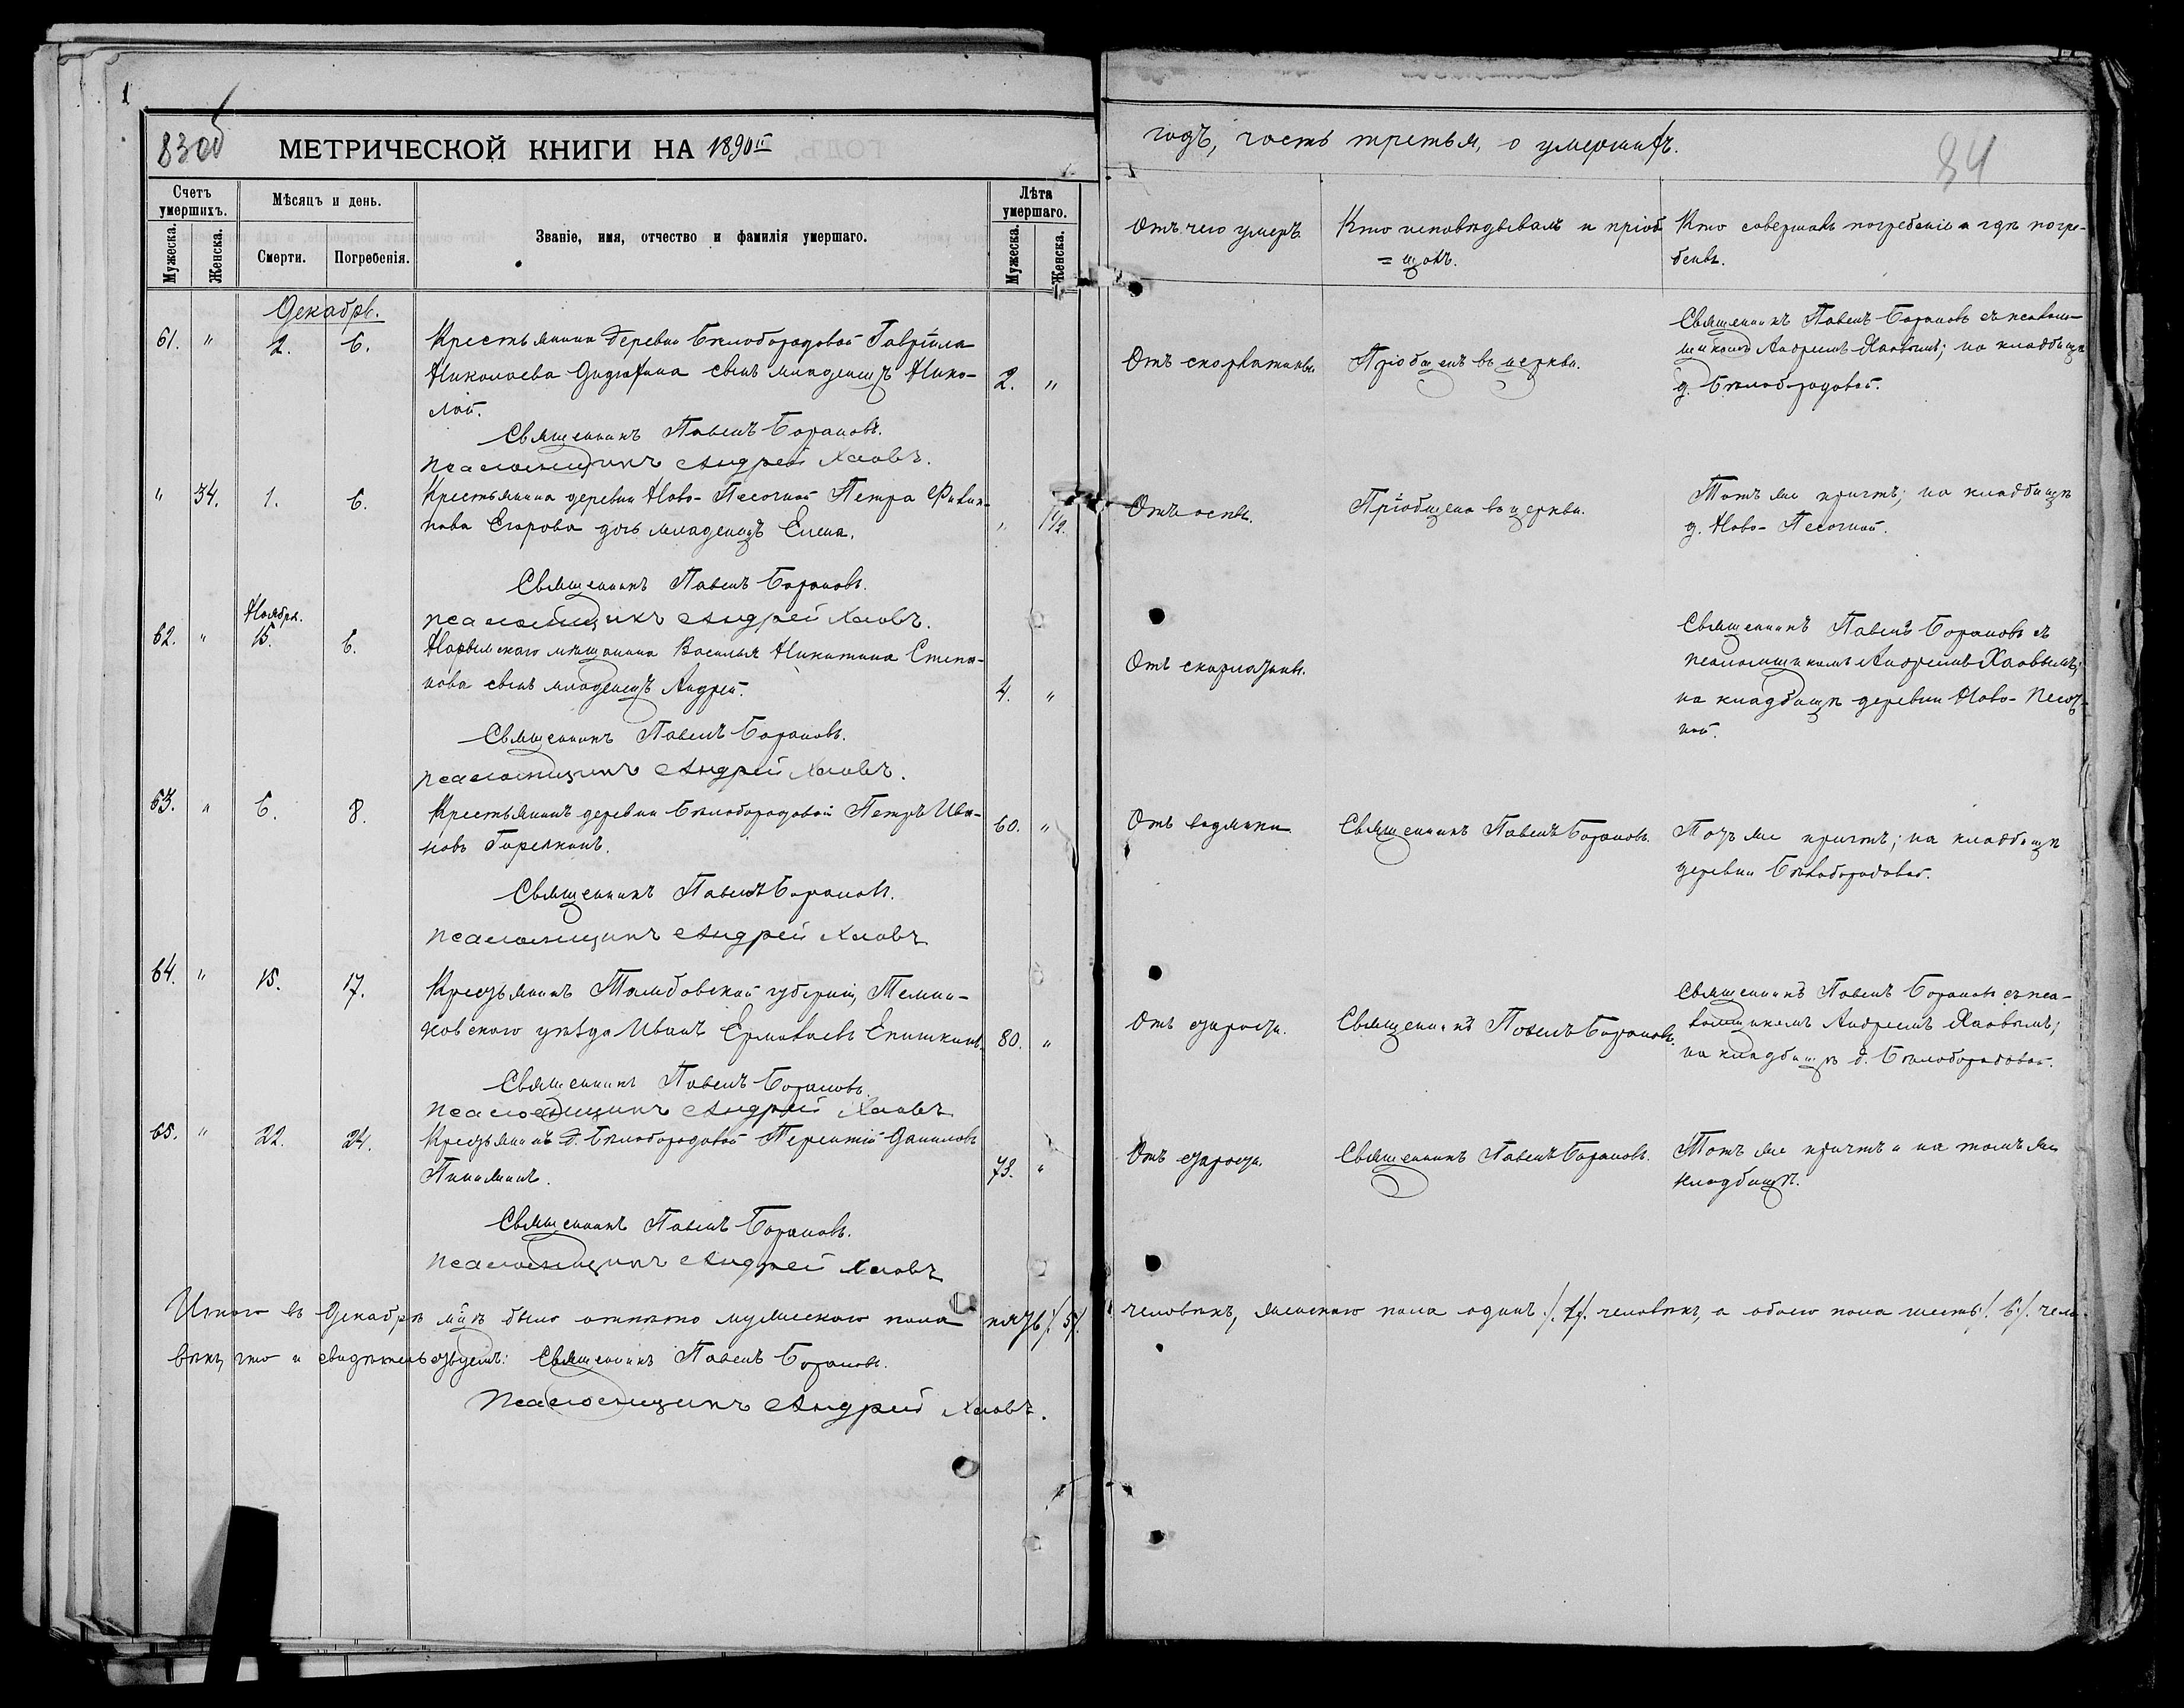 83об
МЕТРИЧЕСКОЙ КНИГИ НА 1890й
Счетъ умершихъ.
Мужеска.
Женска.
Мѣсяцъ и день.
Смерти.
Погребенія.
Званіе, имя, отчество и фамилія умершаго.
Лѣта умершаго.
Мужеска.
Женска.
Декабрь.
61. " 2. 6. Крестьянина деревни Бѣлобородовой Гавріила
Николаева сынъ младенецъ Нико- 2. "
лай.
Священникъ Павелъ Барановъ.
Псаломщикъ Андрей Хаовъ.
" 34. 1. 6. Крестьянина деревни Ново-Песочной Петра Филип-
пова Егорова дочь младенецъ Елена. " 1 1/2.
Священникъ Павелъ Барановъ.
Псаломщикъ Андрей Хаовъ.
Ноябрь.
62. " 15. 6. Нарымскаго мѣщанина Василья Никитина Степа-
нова сынъ младенецъ Андрей. 4. "
Священникъ Павелъ Барановъ.
Псаломщикъ Андрей Хаовъ.
63. " 6. 8. Крестьянинъ деревни Бѣлобородовой Петръ Ива- 60. "
новъ Горелкинъ.
Священникъ Павелъ Барановъ.
Псаломщикъ Андрей Хаовъ
64. " 15. 17. Крестьянинъ Тамбовской губерніи, Темни-
ковскаго уѣзда Иванъ Ермолаевъ Епишкинъ. 80. "
Священникъ Павелъ Барановъ.
Псаломщикъ Андрей Хаовъ
65. " 22. 24. Крестьянинъ д. Бѣлобородовой Терентій Даниловъ
73. "
Священникъ Павелъ Барановъ.
Псаломщикъ Андрей Хаовъ
Итого въ Декабрѣ м-цѣ было отпѣто мужескаго пола пять /.5/.
вѣкъ, что и свидѣтельствуемъ: Священникъ Павелъ Барановъ.
Псаломщикъ Андрей Хаовъ.
годъ, часть третья, о умершихъ.
84
Отъ чего умеръ.
Кто исповѣдывалъ и пріоб
=щалъ.
Кто совершалъ погребеніе и гдѣ погре-
бенъ.
Отъ скорлатины. Пріобщенъ въ церкви.
Священникъ Павелъ Барановъ съ псалом-
щикомъ Андреемъ Хаовымъ; на кладбищѣ
д. Бѣлобородовой.
Отъ оспы. Пріобщена въ церкви.
Тотъ же причтъ; на кладбищѣ
д. Ново-Песочной.
Отъ скорлатины.
Священникъ Павелъ Барановъ съ
псаломщикомъ Андреемъ Хаовымъ;
на кладбищѣ деревни Ново-Песоч-
ной.
Отъ водянки Священникъ Павелъ Барановъ.
Тотъ же причтъ; на кладбищѣ
деревни Бѣлобородовой.
Отъ старости. Священникъ Павелъ Барановъ.
Священникъ Павелъ Барановъ съ пса-
ломщикомъ Андреемъ Хаовымъ;
на кладбищѣ д. Бѣлобородовой.
Отъ старости. Священникъ Павелъ Барановъ.
Тотъ же причтъ и на томъ же
кладбищѣ.
человѣкъ, женскаго пола одинъ /.1/. человѣкъ, а обоего пола шесть /.6/. чело-